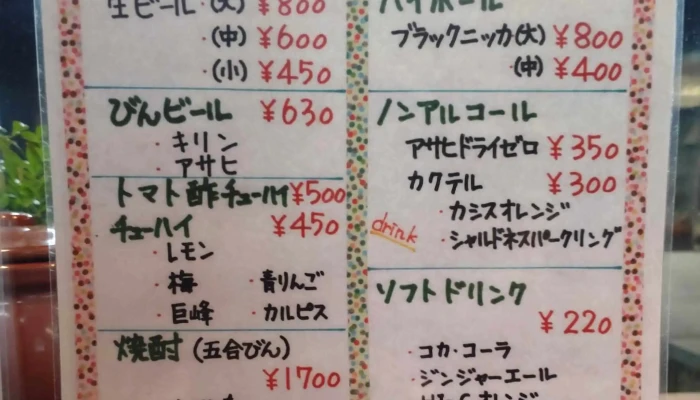 生ビール・(大) ¥800
・(中) ¥600
・(小) ¥450
びんビール ¥630
・キリン
・アサヒ
トマト酢チューハイ¥500
チューハイ ¥450
・レモン
・梅 ・青りんご
・巨峰 ・カルピス
焼酎(五合びん)
¥1700
ハイボール
ブラックニッカ(大) ¥800
(中) ¥400
ノンアルコール
アサヒドライゼロ ¥350
カクテル ¥300
・カシスオレンジ
drink
・シャルドネスパークリング
ソフトドリンク
¥220
・コカ・コーラ
・ジンジャーエール
オレンジ